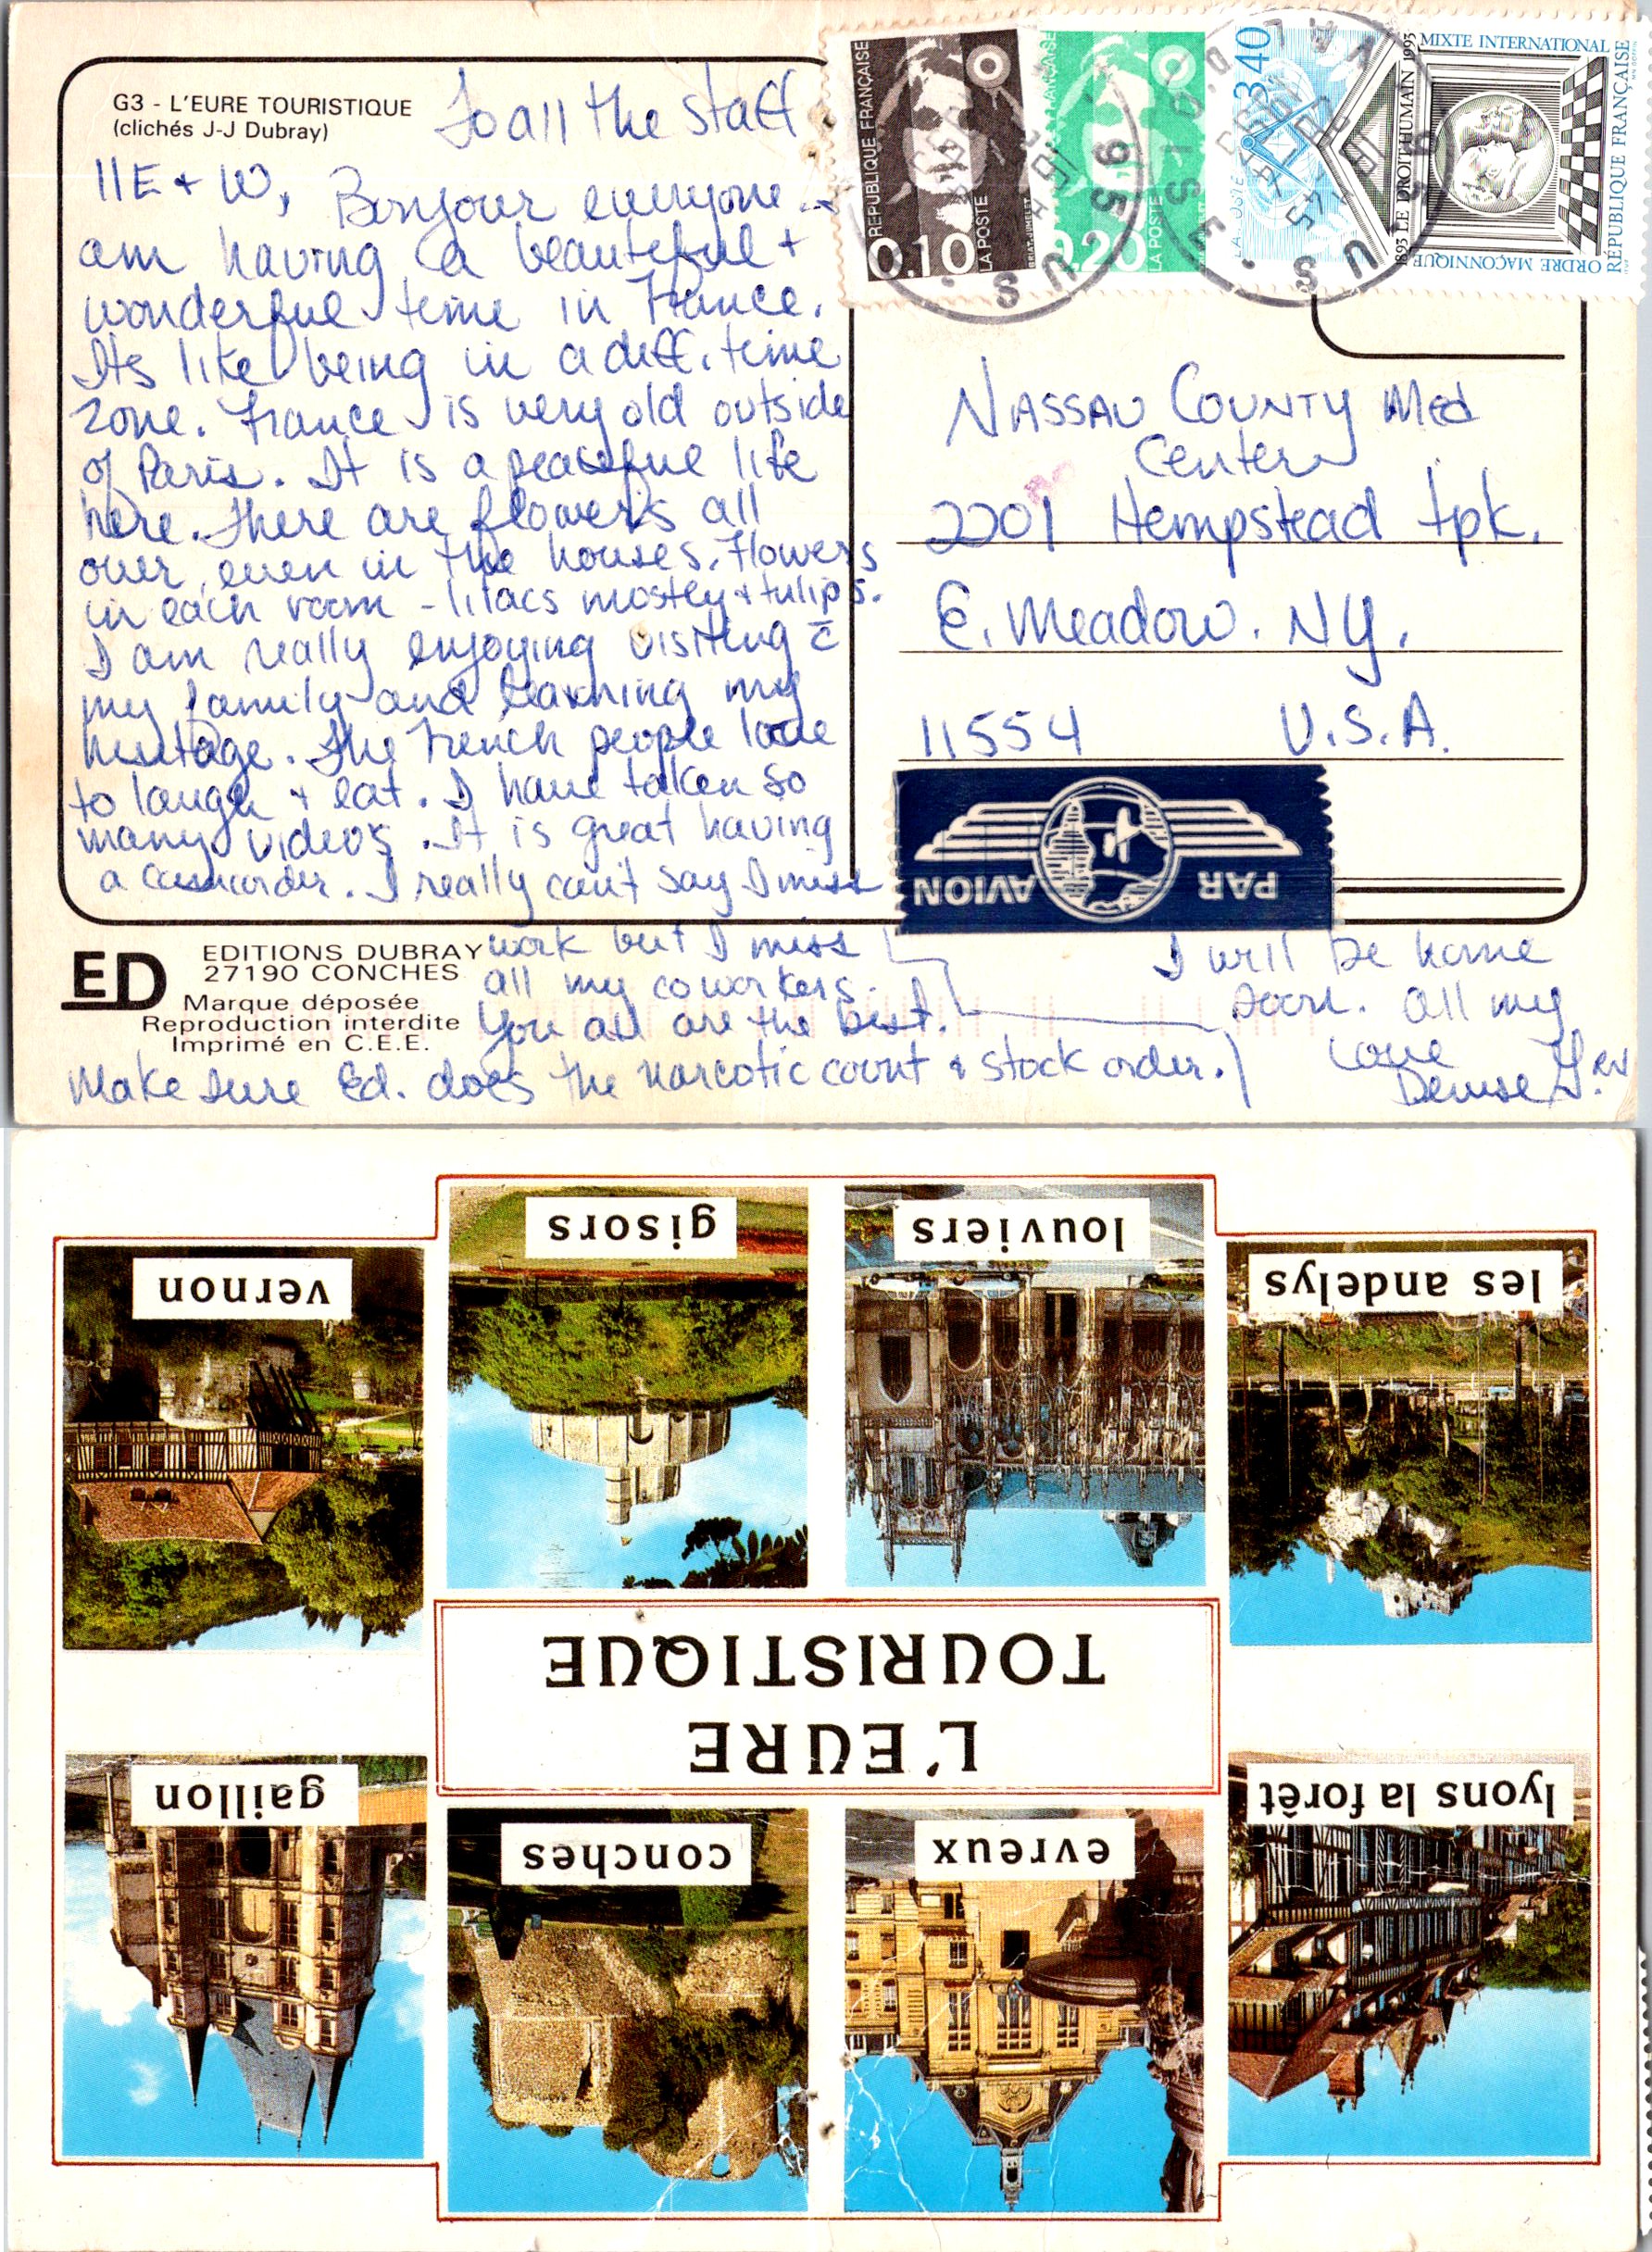 G3 - L'EURE TOURISTIQUE
(clichés J-J Dubray)
To all the staff
11E + W, Bonjour everyone.
am having a beautiful +
wonderful time in France.
Its like being in a diff. time
zone. France is very old outside
of Paris. It is a peaceful life
here. There are flowers all
over, even in the houses. Flowers
in each room - lilacs mostly + tulips.
I am really enjoying visiting c̄
my family and learning my
heritage. The French people love
to laugh + eat. I have taken so
many videos. It is great having
a camcorder. I really can't say I miss
work but I miss
all my coworkers.
You all are the best.
Make sure Ed. does the narcotic count & stock order.
I will be home
soon. All my
Love
Denise G. RN
ED
EDITIONS DUBRAY
27190 CONCHES
Marque déposée
Reproduction interdite
Imprimé en C.E.E.
RÉPUBLIQUE FRANÇAISE
0.10
LA POSTE
FRANÇAISE
0.20
LA POSTE
3,40
LA POSTE
1893 LE DROIT HUMAIN 1993
MIXTE INTERNATIONAL
ORDRE MAÇONNIQUE
RÉPUBLIQUE FRANÇAISE
95 US
VAL D'OISE
95 US
NASSAU COUNTY Med
Center
2201 Hempstead tpk.
E. Meadow. NY.
11554 U.S.A.
PAR AVION
vernon
gisors
louviers
les andelys
L'EURE
TOURISTIQUE
gaillon
conches
evreux
lyons la forêt